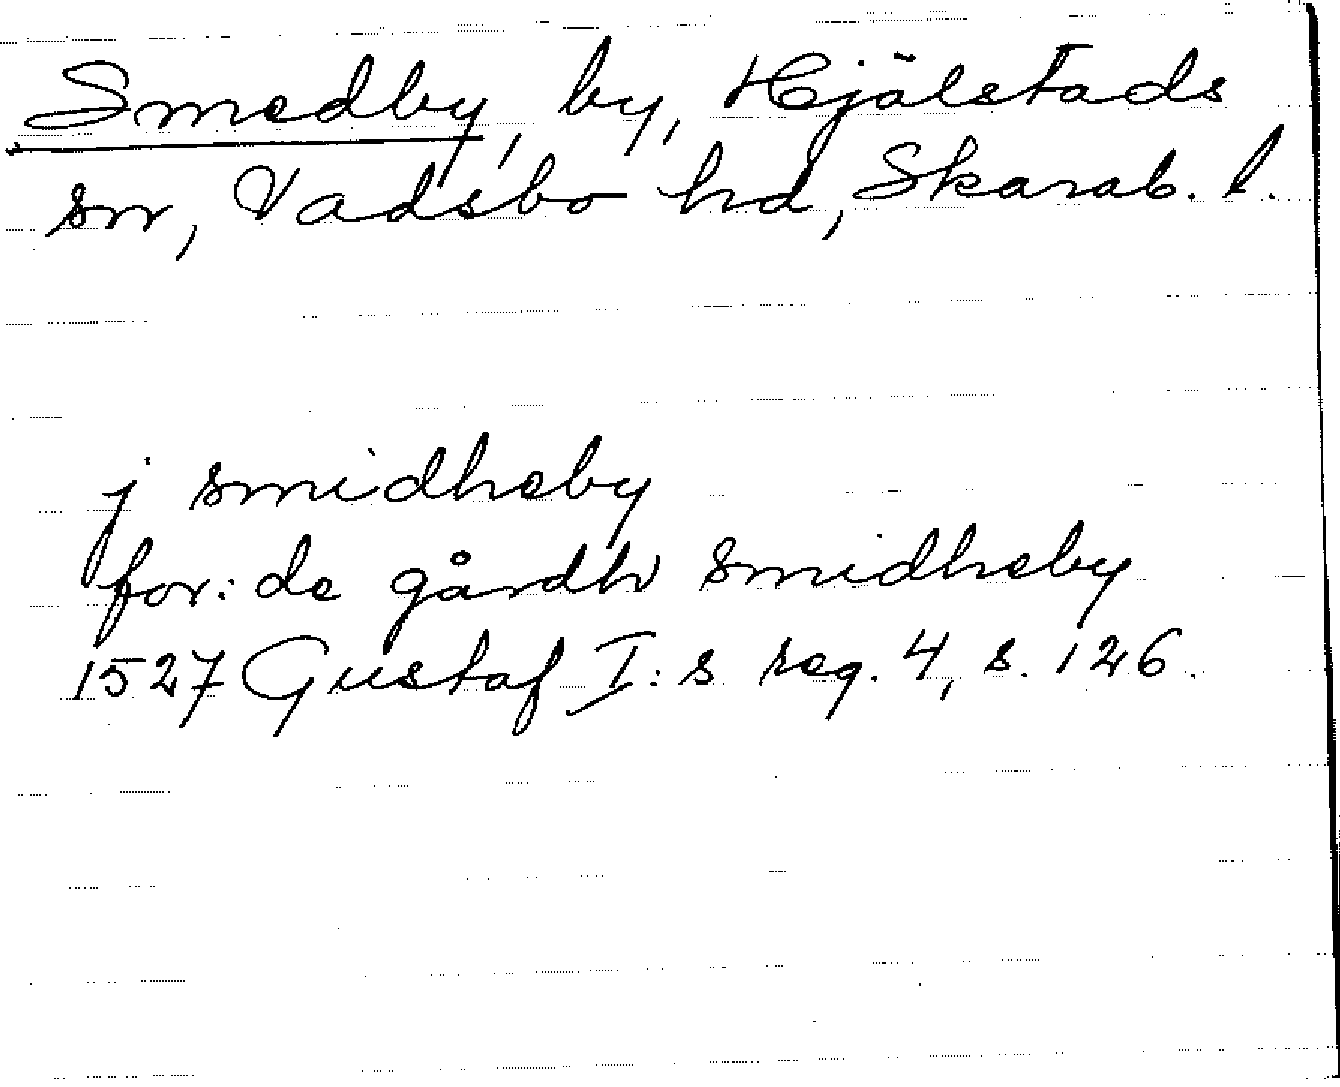 Smedby, by, Hjälstads
sn, Vadsbo hd, Skarab. l.
j smidheby
for: de gårdh smidheby
1527 Gustaf I:s reg. 4, s. 126.